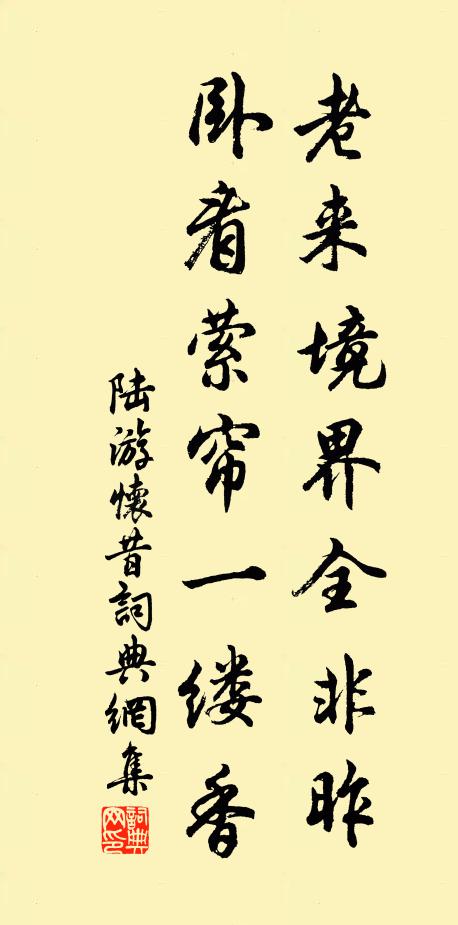 老来境界全非昨
卧看萦帘一缕香
陆游懷昔詞典網集
詞典网印